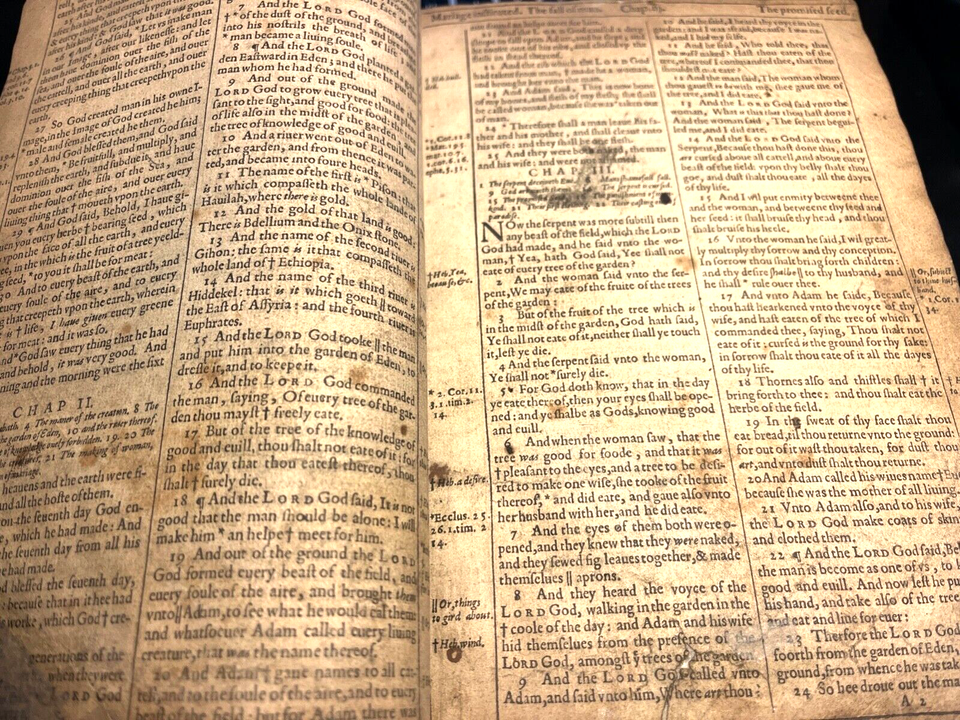 after his kind: & God saw that it was good.
26 And God said, *Let vs make man
in our Image, after our likenesse: and let
them haue dominion ouer the fish of the
sea, and ouer the foule of the aire, and ouer
the cattell, and ouer all the earth, and ouer
euery creeping thing that creepeth vpon the
earth.
27 So God created man in his owne I-
mage, in the Image of God created he him;
*male and female created he them.
28 And God blessed them, and God said
vnto them, *Be fruitfull, and multiply, and
replenish the earth, and subdue it, and haue
dominion ouer the fish of the Sea, and
ouer the foule of the aire, and ouer euery
liuing thing that † moueth vpon the earth.
29 ¶ And God said, Behold, I haue gi-
uen you euery herbe † bearing seed, which
is vpon the face of all the earth, and euery
tree, in the which is the fruit of a tree yeeld-
ing seed, *to you it shall be for meat:
30 And to euery beast of the earth, and
to euery foule of the aire, and to euery
thing that creepeth vpon the earth, wherein
there is † life, I haue giuen euery greene
herbe for meat: and it was so.
31 And *God saw euery thing that he had
made: and behold, it was very good. And
the euening and the morning were the sixt
CHAP II.
sabbath. 4 The maner of the creation. 8 The
garden of Eden, 10 and the riuer therof.
of knowledge onely forbidden. 19. 20 The
21 The making of woman,
of mariage.
heauens and the earth were fi-
and all the hoste of them.
on the seuenth day God en-
worke, which he had made: And
the seuenth day from all his
he had made.
God blessed the seuenth day,
because that in it he had
his worke, which God † cre-
generations of the
when they were
LORD God
7 And the LORD God formed
man † of the dust of the ground, &
into his nostrils the breath of life,
*man became a liuing soule.
8 ¶ And the LORD God planted a
den Eastward in Eden; and there he put
man whom he had formed.
9 And out of the ground made
LORD God to grow euery tree that is
sant to the sight, and good for food: the
of life also in the midst of the garden,
the tree of knowledge of good and euill.
10 And a riuer went out of Eden to
the garden, and from thence it was par-
ted, and became into foure heads.
11 The name of the first is *Pison:
is it which compasseth the whole land of
Hauilah, where there is gold.
12 And the gold of that land is good:
There is Bdellium and the Onix stone.
13 And the name of the second riuer is
Gihon: the same is it that compasseth the
whole land of † Ethiopia.
14 And the name of the third riuer is
Hiddekel: that is it which goeth || toward
the East of Assyria: and the fourth riuer is
Euphrates.
15 And the LORD God tooke || the man
and put him into the garden of Eden, to
dresse it, and to keepe it.
16 And the LORD God commanded
the man, saying, Of euery tree of the gar-
den thou mayst † freely eate.
17 But of the tree of the knowledge of
good and euill, thou shalt not eate of it: for
in the day that thou eatest thereof, thou
shalt † surely die.
18 ¶ And the LORD God said, It is not
good that the man should be alone: I will
make him * an helpe † meet for him.
19 And out of the ground the LORD
God formed euery beast of the field, and
euery soule of the aire, and brought them
vnto || Adam, to see what he would call them:
and whatsoeuer Adam called euery liuing
creature, that was the name thereof.
20 And Adam † gaue names to all cat-
tell, and to the soule of the aire, and to euery
beast of the field: but for Adam there was
Mariage instituted. The fall of man. Chap. iij. The promised seed.
21 And the LORD God caused a deep
sleepe to fall vpon Adam, and he slept; and
he tooke one of his ribs, and closed vp the
flesh in stead thereof.
22 And the rib which the LORD God
had taken from man, † made he a woman,
and brought her vnto the man.
23 And Adam said, This is now bone
of my bones, and flesh of my flesh: she shall
be called woman, because she was taken out
of man.
24 * Therefore shall a man leaue his fa-
ther and his mother, and shall cleaue vnto
his wife: and they shall be one flesh.
25 And they were both naked, the man
and his wife: and were not ashamed.
CHAP. III.
1 The serpent deceiueth Eue.
NOw the serpent was more subtill then
any beast of the field, which the LORD
God had made, and he said vnto the wo-
man, † Yea, hath God said, Yee shall not
eate of euery tree of the garden?
2 And the woman said vnto the ser-
pent, We may eate of the fruite of the trees
of the garden:
3 But of the fruit of the tree which is
in the midst of the garden, God hath said,
Ye shall not eate of it, neither shall ye touch
it, left ye die.
4 And the serpent said vnto the woman,
Ye shall not *surely die.
5 * For God doth know, that in the day
ye eate thereof, then your eyes shall be ope-
ned: and ye shalbe as Gods, knowing good
and euill.
6 And when the woman saw, that the
tree was good for foode, and that it was
† pleasant to the eyes, and a tree to be desi-
red to make one wise, she tooke of the fruit
thereof, * and did eate, and gaue also vnto
her husband with her, and he did eate.
7 And the eyes of them both were o-
pened, and they knew that they were naked,
and they sewed fig leaues together, & made
themselues || aprons.
8 And they heard the voyce of the
LORD God, walking in the garden in the
† coole of the day: and Adam and his wife
hid themselues from the presence of the
LORD God, amongst ye trees of the garden.
9 And the LORD God called vnto
Adam, and said vnto him, Where art thou?
† Heb. Yea,
because, &c.
* 2. Cor. 11.
3. 1. tim. 2.
14.
† Heb. a desire.
*Ecclus. 25.
26. 1. tim. 2
14.
|| Or, things
to gird about.
† Heb. wind.
10 And he said, I heard thy voyce in the
garden: and I was afraid, because I was na-
ked, and I hid my selfe.
11 And he said, Who told thee, that
thou wast naked? Hast thou eaten of the
tree, whereof I commanded thee, that thou
shouldst not eate?
12 And the man said, The woman whom
thou gauest to be with me, shee gaue me of
the tree, and I did eate.
13 And the LORD God said vnto the
woman, What is this that thou hast done?
And the woman said, The Serpent begui-
led me, and I did eate.
14 And the LORD God said vnto the
Serpent, Because thou hast done this, thou
art cursed aboue all cattell, and aboue euery
beast of the field: vpon thy belly shalt thou
goe, and dust shalt thou eate, all the dayes
of thy life.
15 And I will put enmity betweene thee
and the woman, and betweene thy seed and
her seed: it shall bruise thy head, and thou
shalt bruise his heele.
16 Vnto the woman he said, I will great-
ly multiply thy sorrow and thy conception.
In sorrow thou shalt bring forth children:
and thy desire shalbe || to thy husband, and
he shall * rule ouer thee.
17 And vnto Adam he saide, Because
thou hast hearkened vnto the voyce of thy
wife, and hast eaten of the tree of which I
commanded thee, saying, Thou shalt not
eate of it: cursed is the ground for thy sake:
in sorrow shalt thou eate of it all the dayes
of thy life.
18 Thornes also and thistles shall it †
bring forth to thee: and thou shalt eat the
herbe of the field.
19 In the sweat of thy face shalt thou
eat bread, til thou returne vnto the ground:
for out of it wast thou taken, for dust thou
art, and vnto dust shalt thou returne.
20 And Adam called his wiues name † Eue,
because she was the mother of all liuing.
21 Vnto Adam also, and to his wife,
the LORD God make coats of skins
and clothed them.
22 ¶ And the LORD God said, Be
the man is become as one of vs, to
good and euill. And now left he put
his hand, and take also of the tree
and eat and liue for euer:
23 Therfore the LORD God
foorth from the garden of Eden,
ground, from whence he was take
24 So hee droue out the ma
A 2
|| Or, subiect
to thine hus-
band.
* 1. Cor.
14.